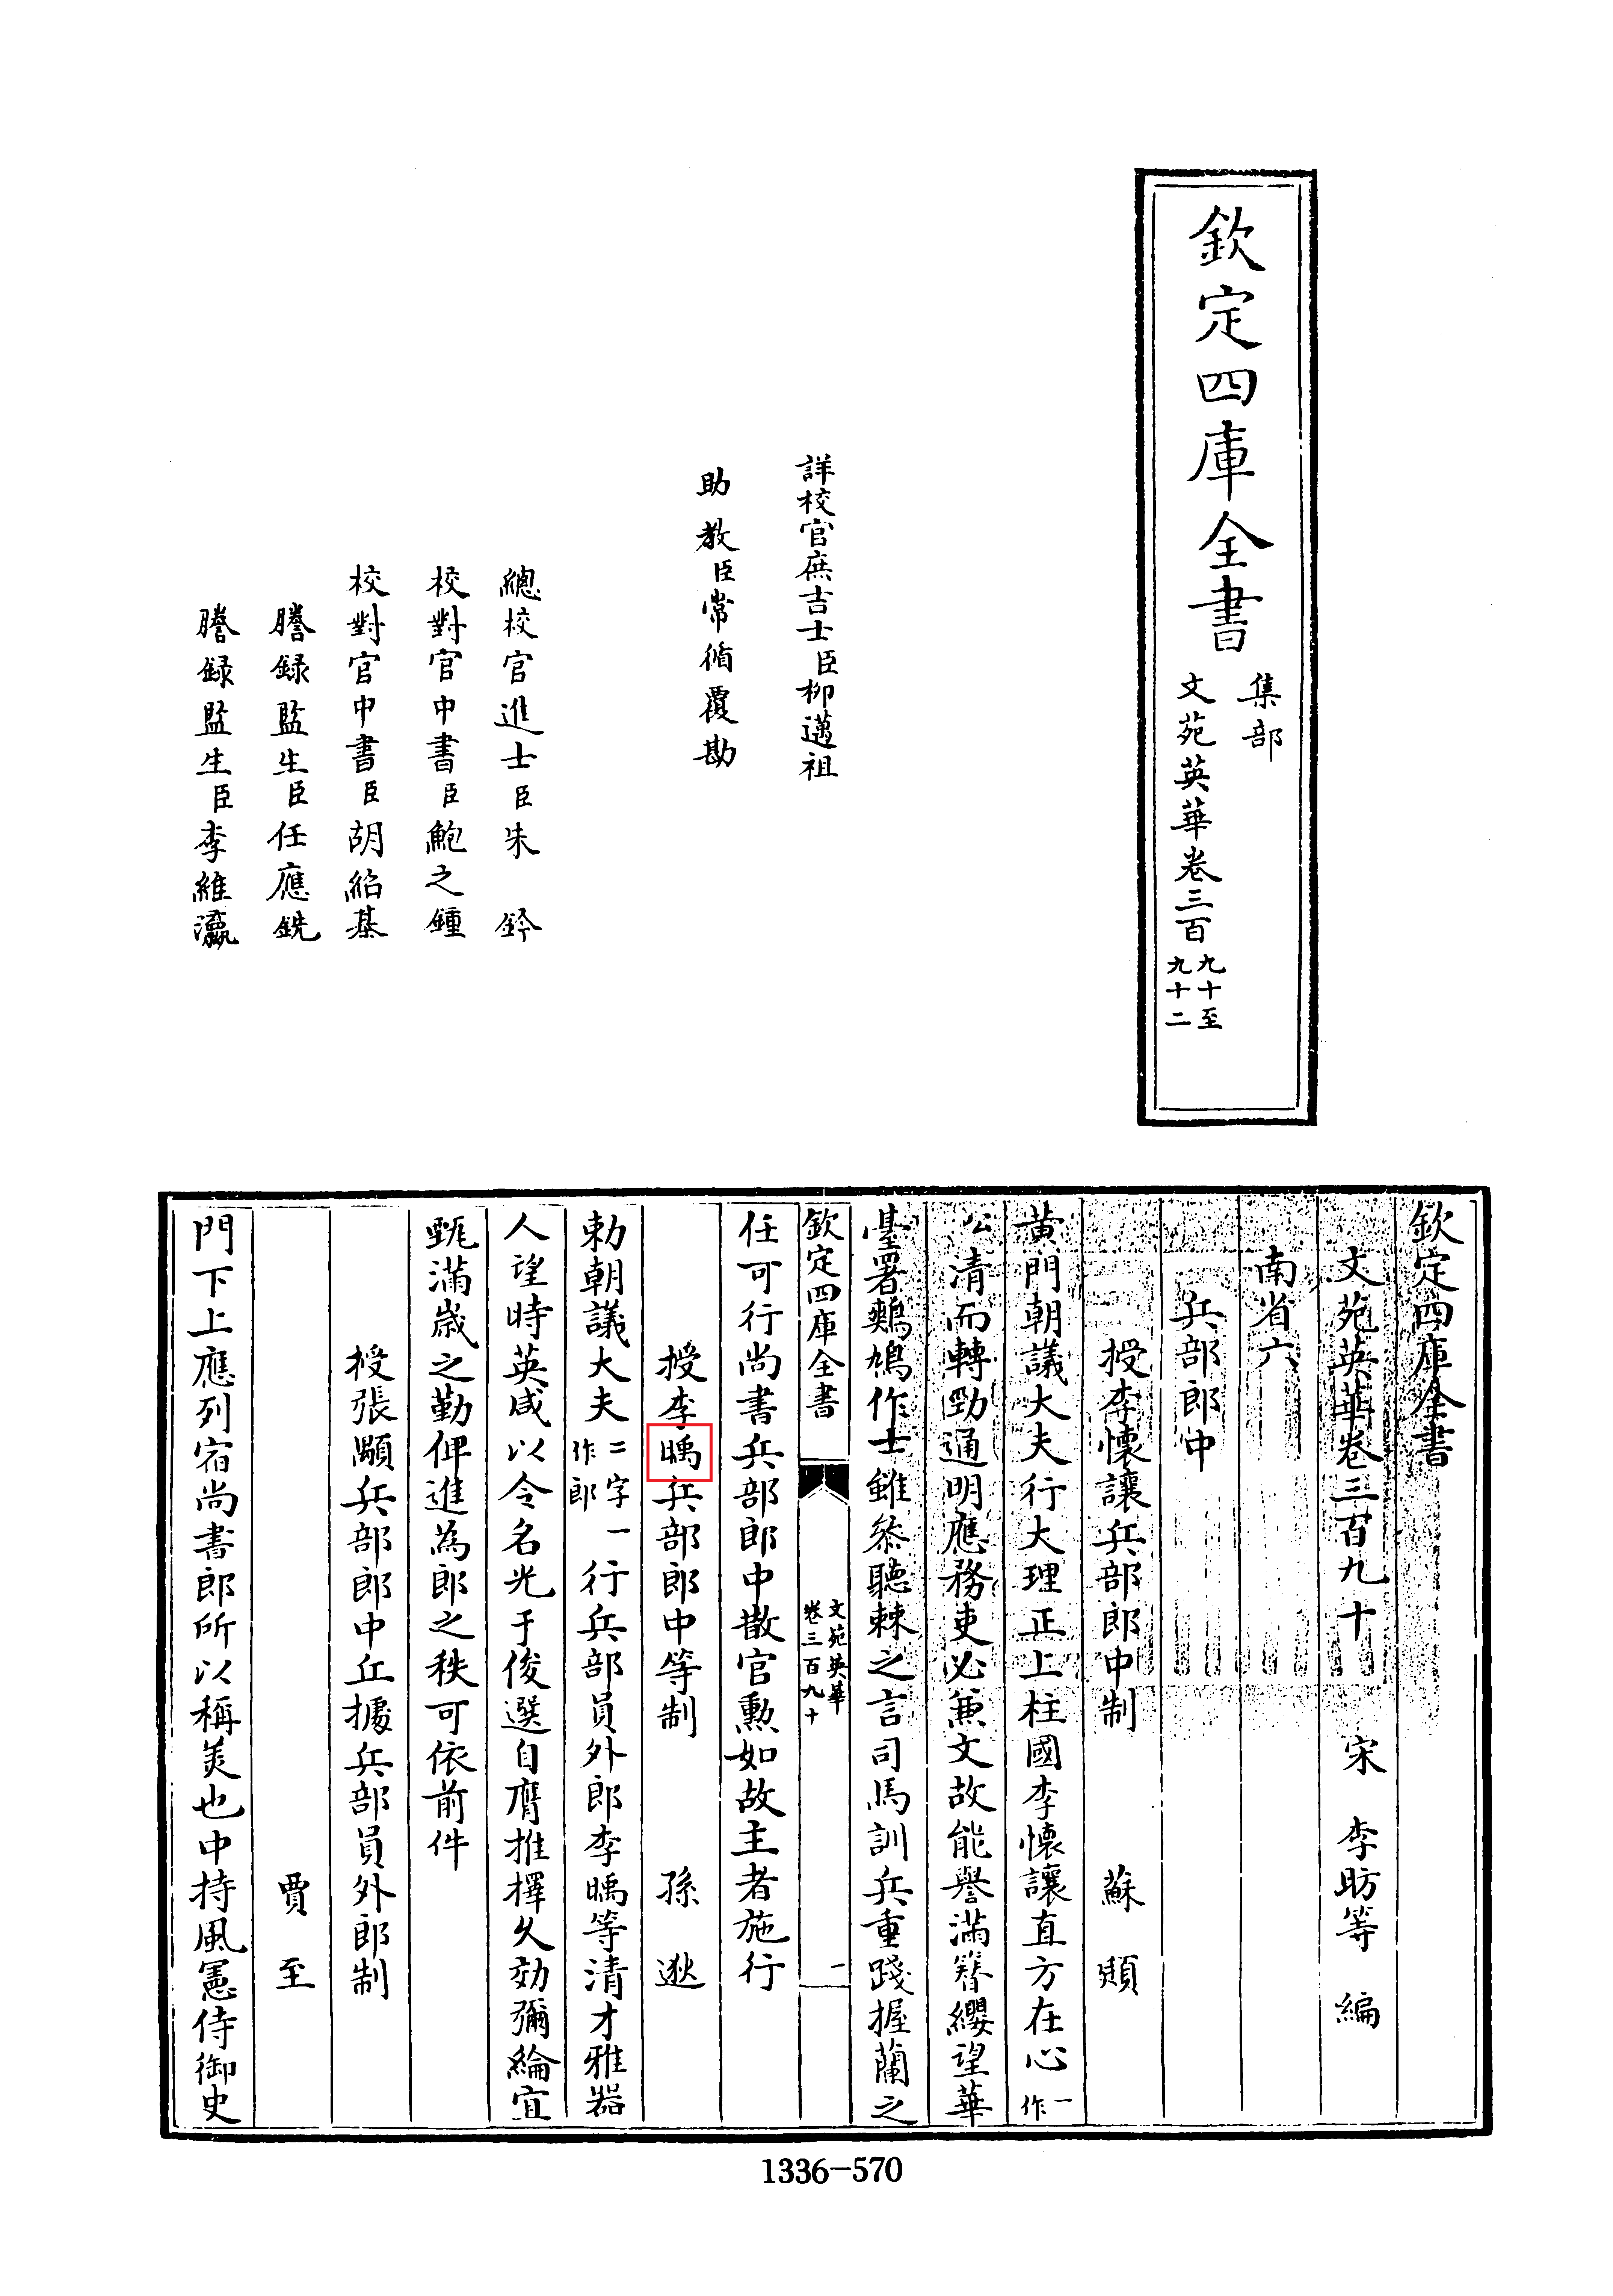 欽定四庫全書
集部
文苑英華卷三百九十至九十二
詳校官庶吉士臣柳邁祖
助教臣常循覆勘
總校官進士臣朱鈐
校對官中書臣鮑之鍾
校對官中書臣胡紹基
謄錄監生臣任應銑
謄錄監生臣李維瀛
欽定四庫全書
文苑英華卷三百九十 宋 李昉等 編
南省六
兵部郎中
授李懷讓兵部郎中制 蘇頲
黄門朝議大夫行大理正上柱國李懷讓直方在心一作
公清而轉勁通明應務吏必兼文故能譽滿簪纓望華
臺署鷞鳩作士雖叅聽棘之言司馬訓兵重踐握蘭之
欽定四庫全書 文苑英華卷三百九十 一
任可行尚書兵部郎中散官勲如故主者施行
授李兵部郎中等制 孫逖
勅朝議大夫二字一作郎行兵部員外郎李等清才雅器
人望時英咸以令名光于俊選自膺推擇久効彌綸宜
甄滿歲之勤俾進為郎之秩可依前件
授張顒兵部郎中丘據兵部員外郎制
賈至
門下上應列宿尚書郎所以稱美也中持風憲侍御史
1336-570